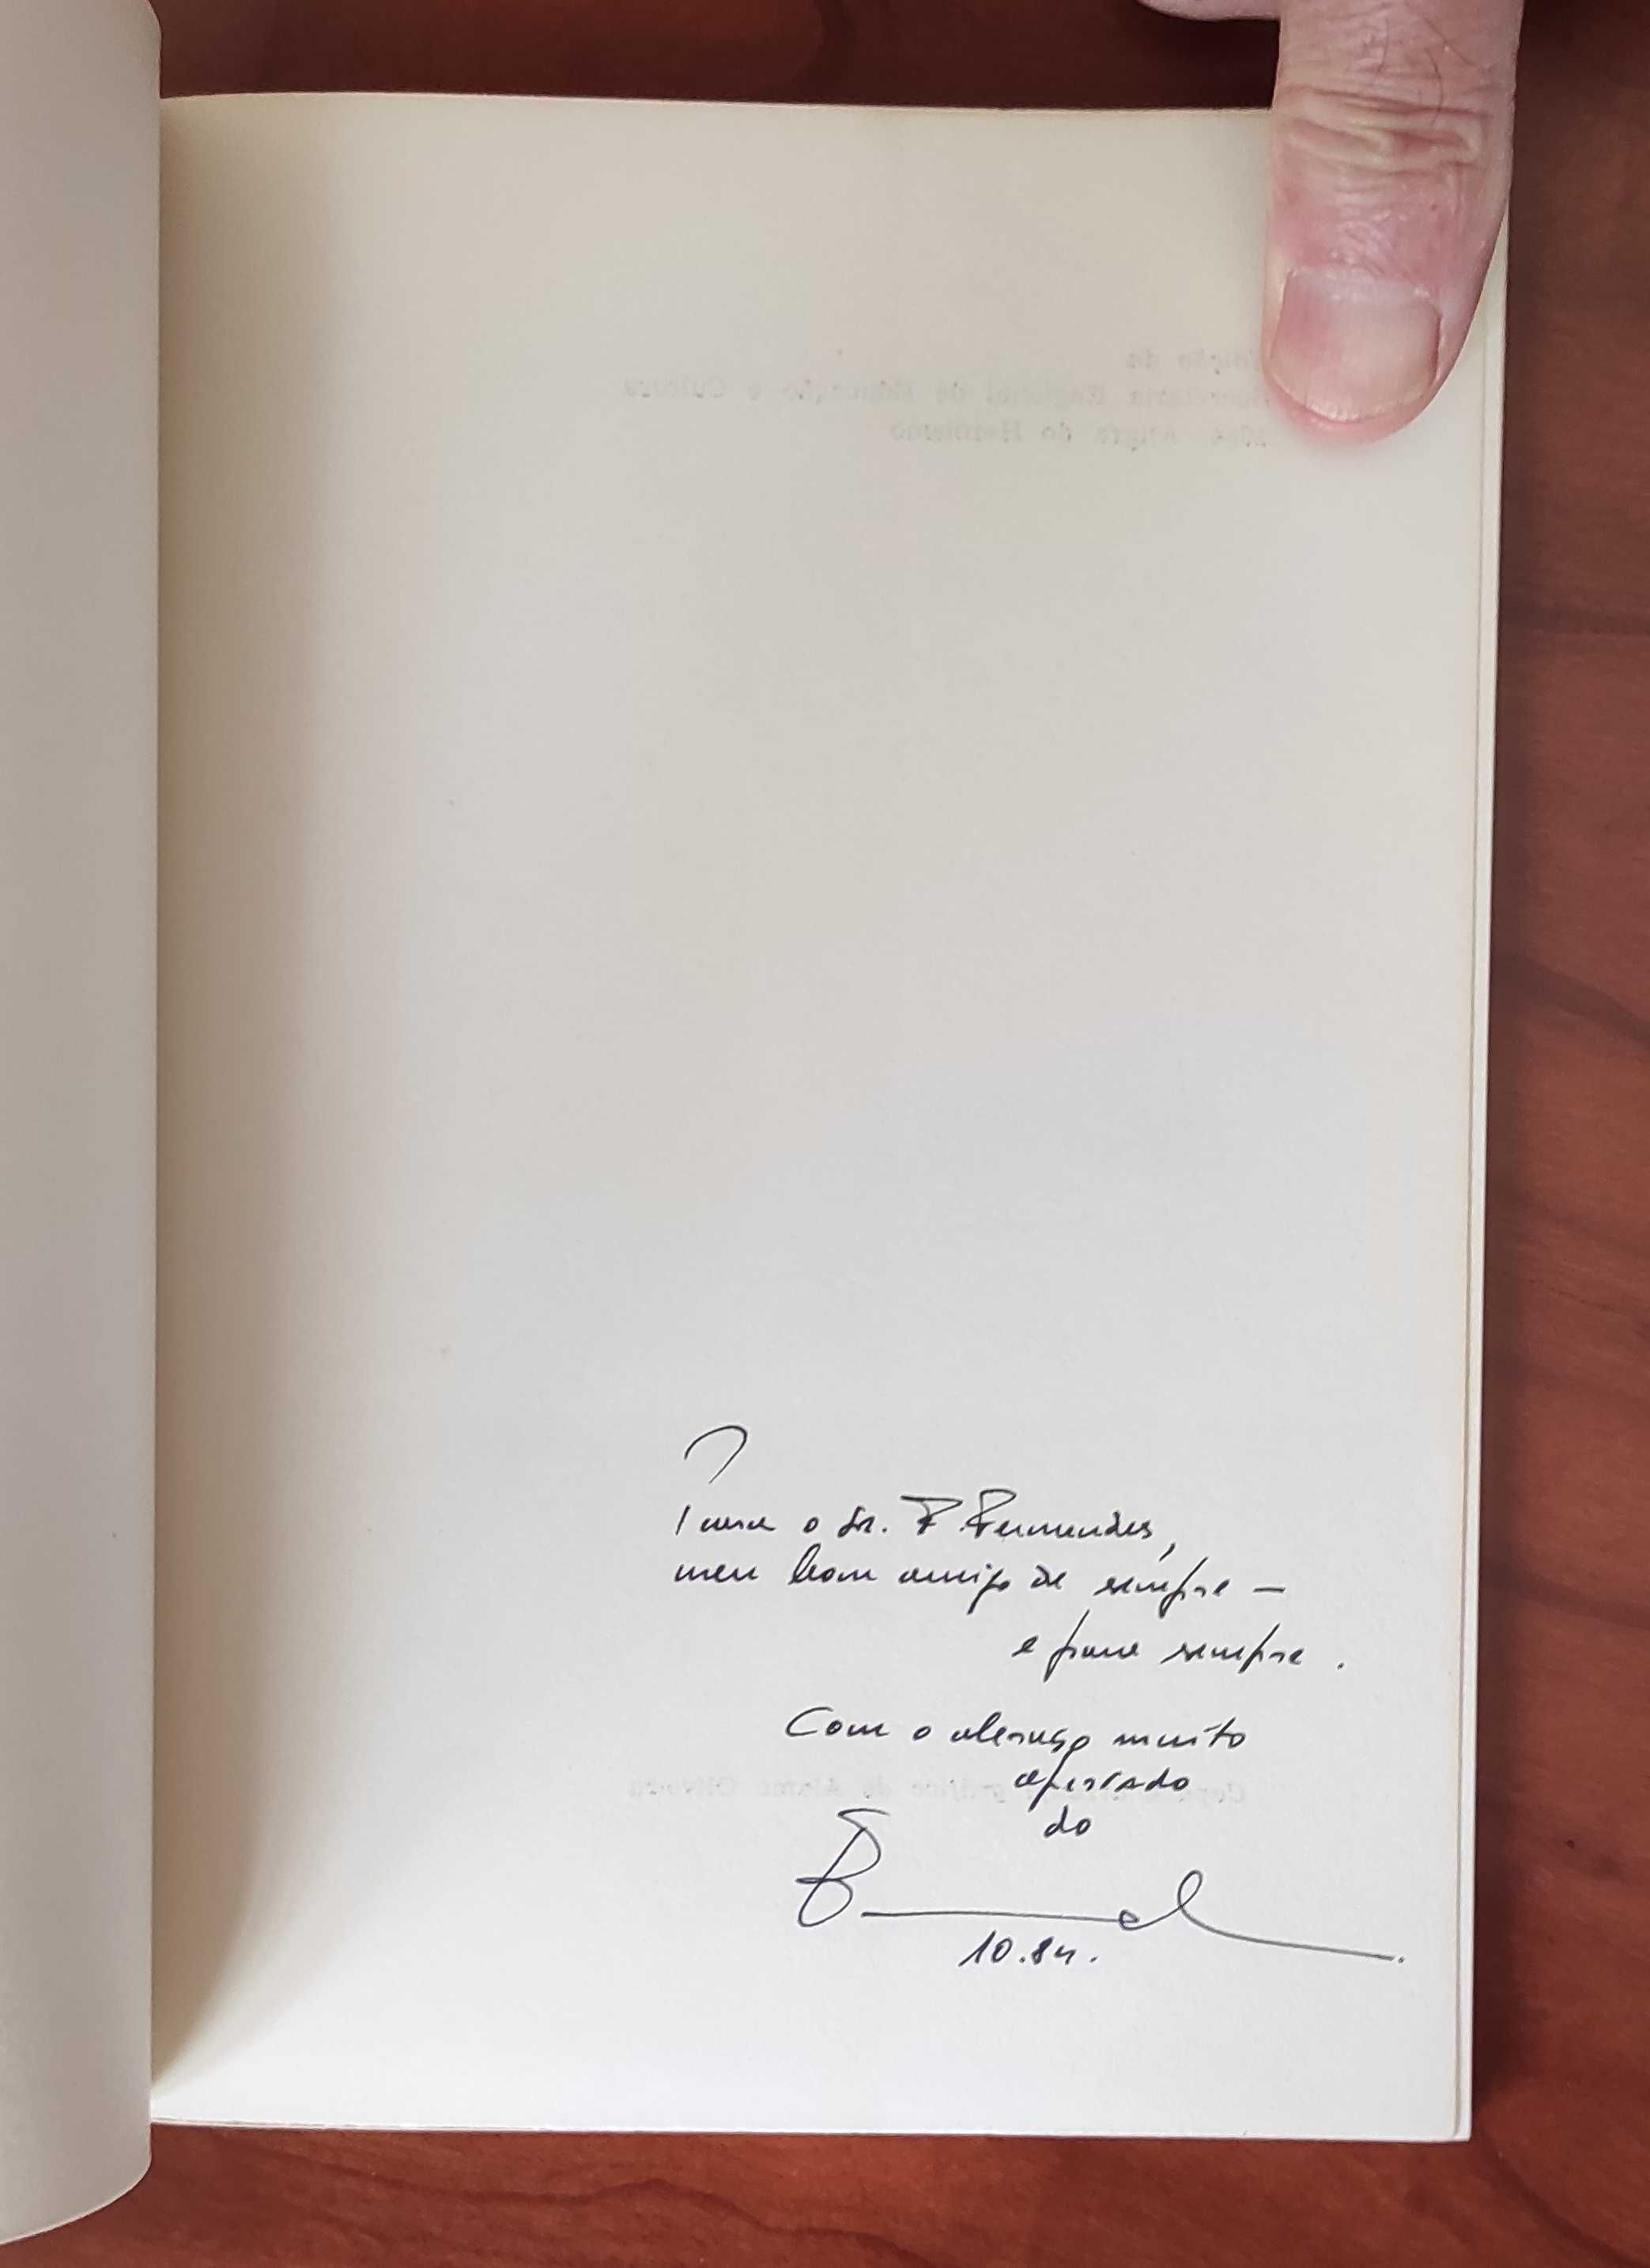 Edição da
Secretaria Regional de Educação e Cultura
1984 Angra do Heroísmo
Para o Dr. F. Fernandes,
meu bom amigo de sempre —
e para sempre.
Com o abraço muito
apertado
do
10.84.
gráfico de Álamo Oliveira